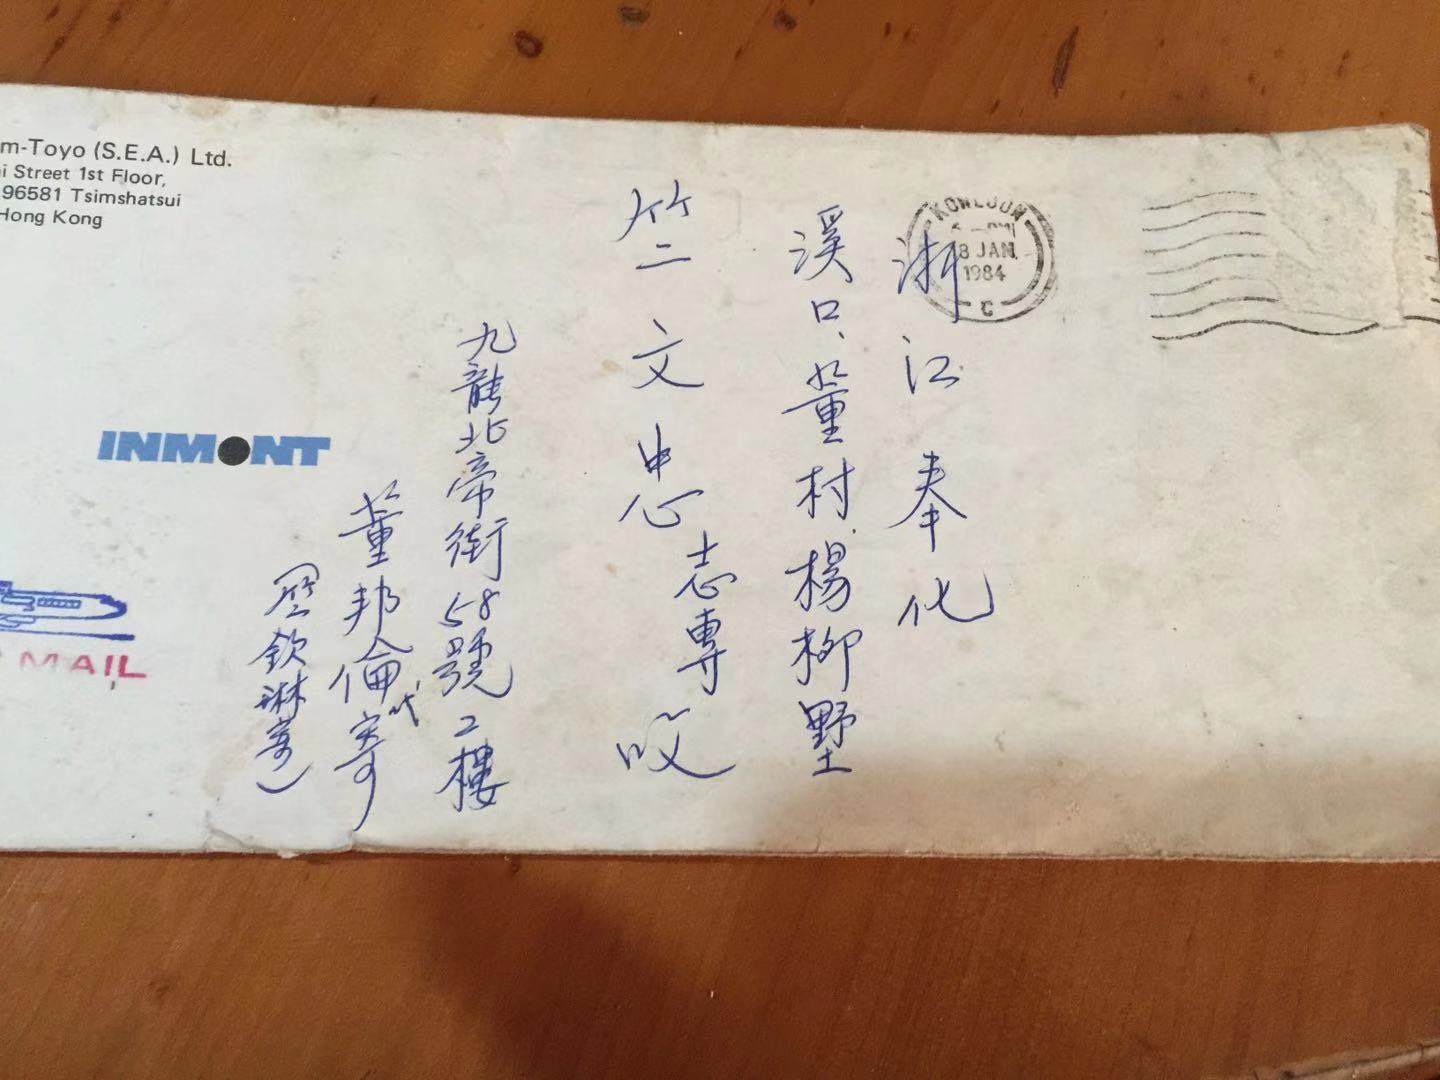 m-Toyo (S.E.A.) Ltd.
i Street 1st Floor,
96581 Tsimshatsui
Hong Kong
KOWLOON
8 JAN.
1984
C
浙江奉化
溪口、董村、楊柳墅
竺文忠志專收
九龍北帝街58號2樓
董邦倫代寄
(竺欽琳寄)
INMONT
MAIL